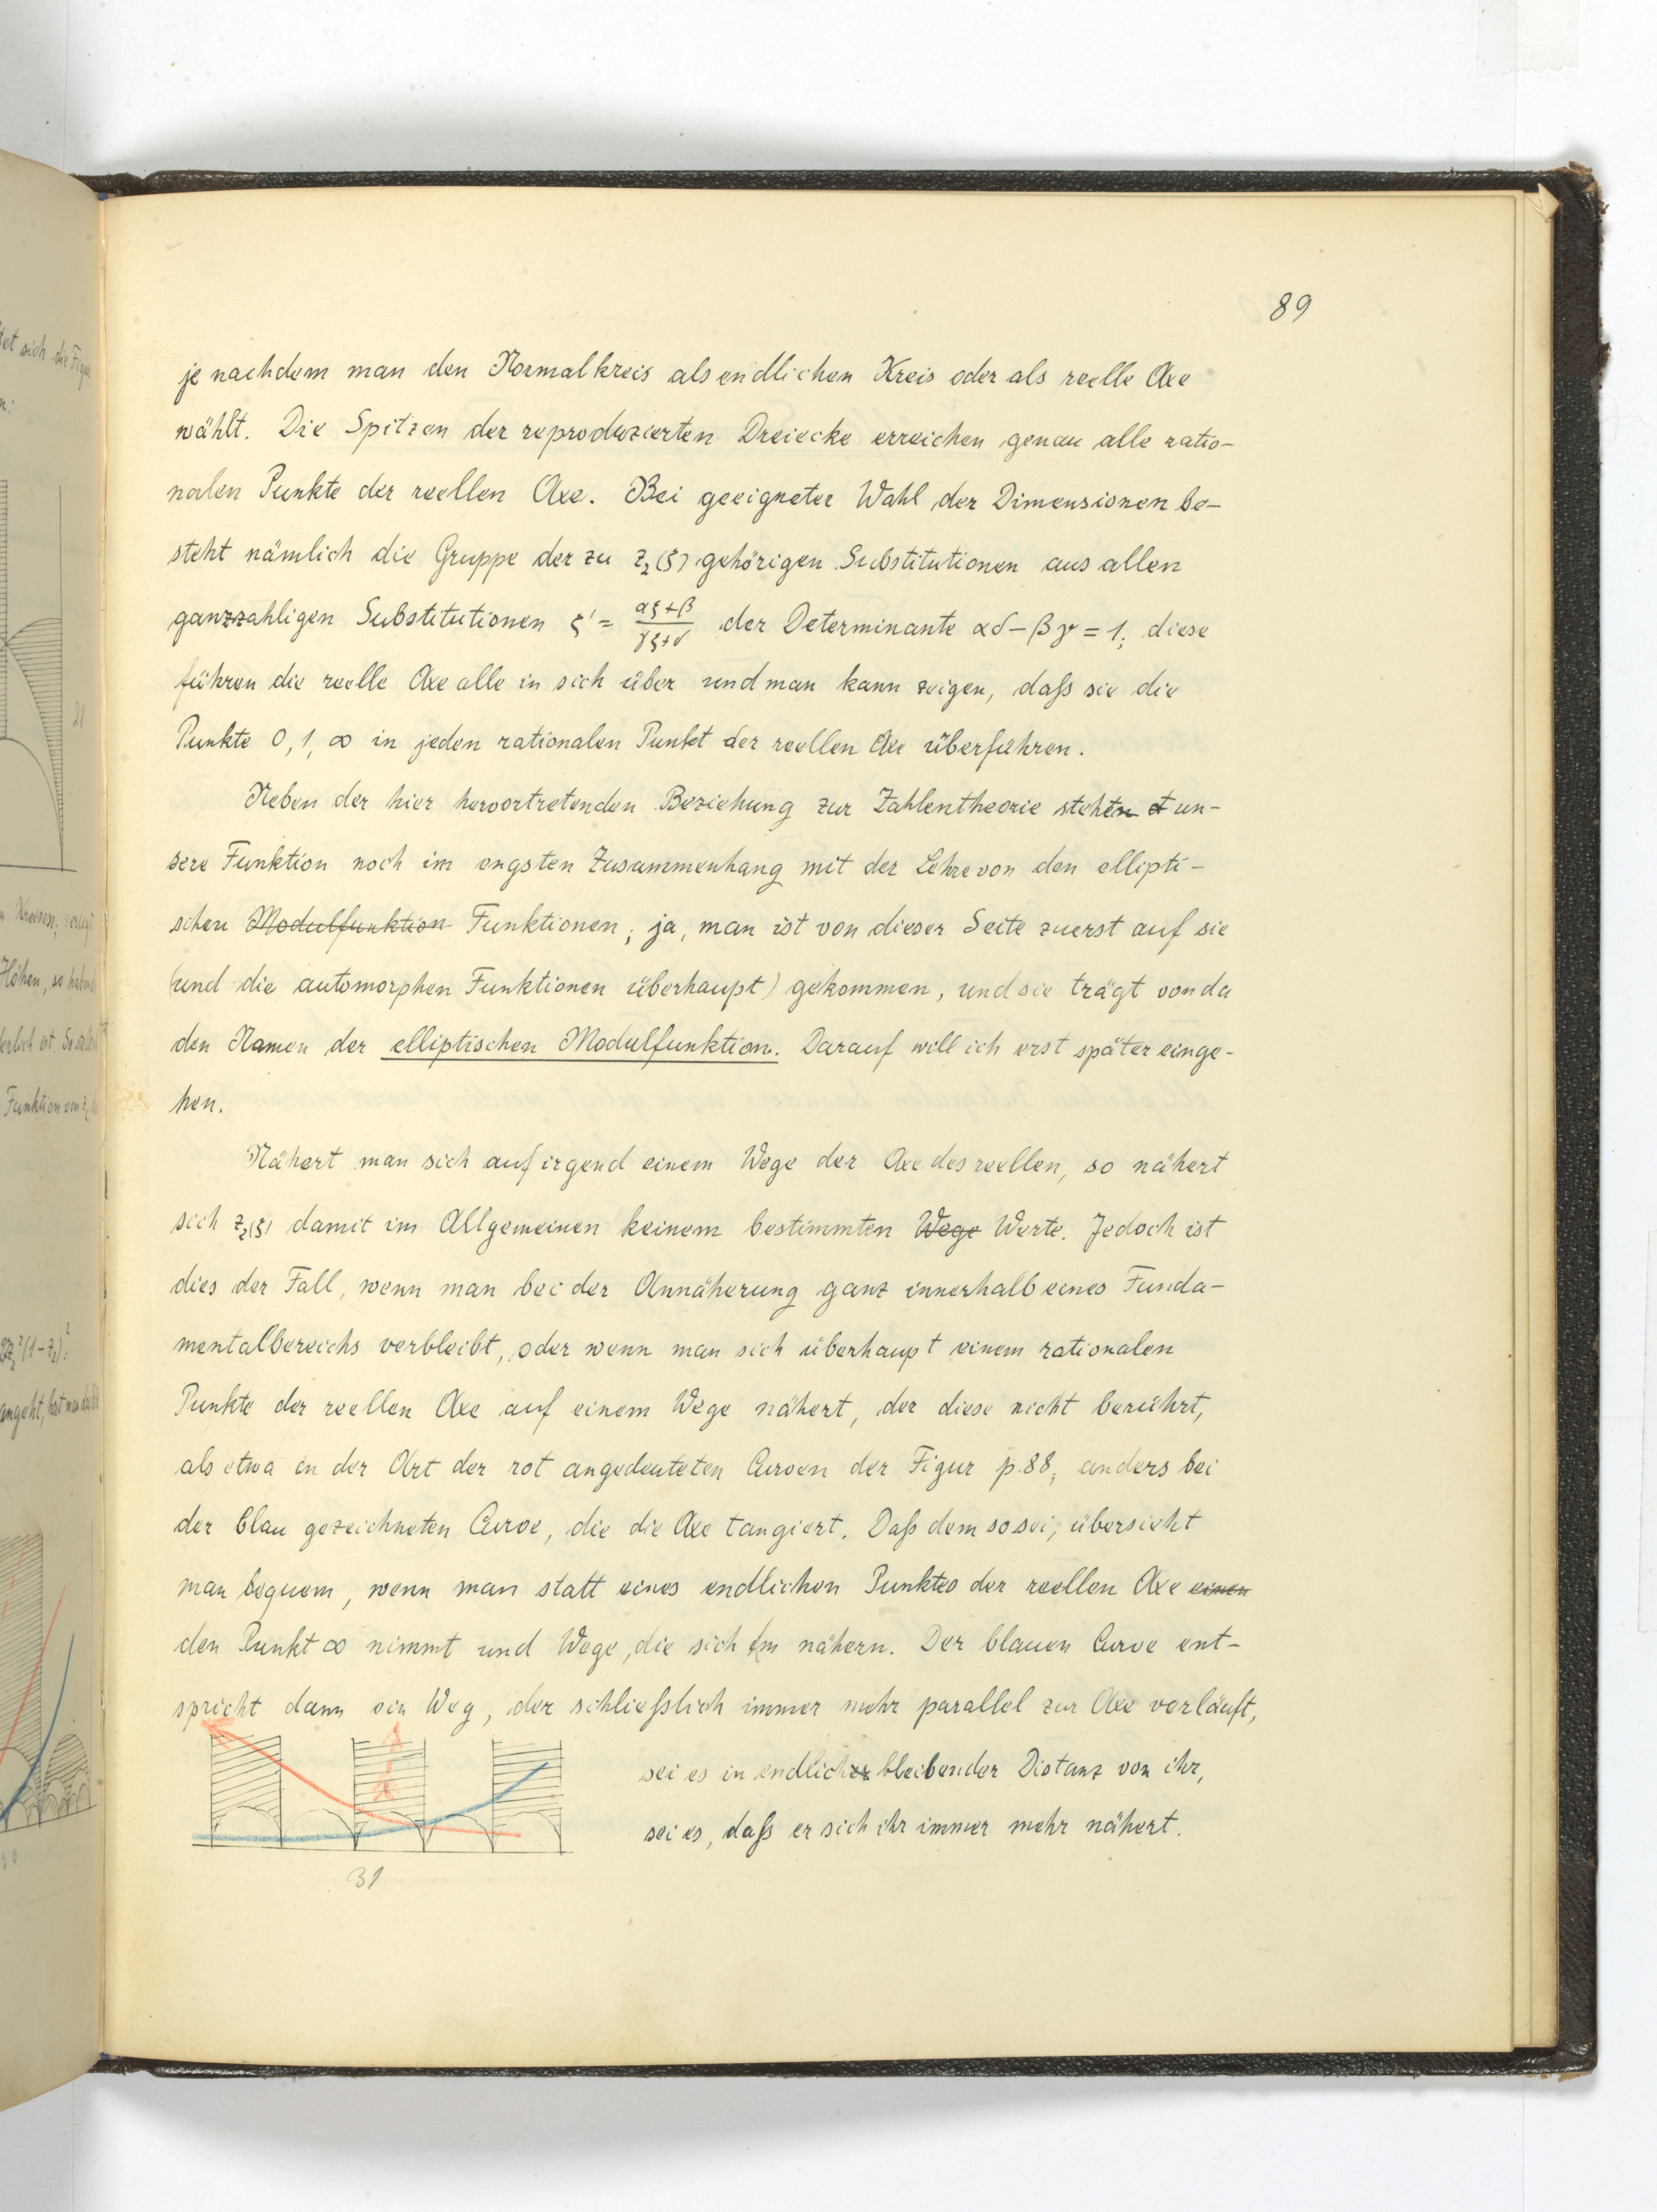 89
je nachdem man den Normalkreis als endlichen Kreis oder als reelle Axe
wählt. Die Spitzen der reproduzierten Dreiecke erreichen genau alle ratio-
nalen Punkte der reellen Axe. Bei geeigneter Wahl der Dimensionen be-
steht nämlich die Gruppe der zu z₂(ζ) gehörigen Substitutionen aus allen
ganzzahligen Substitutionen ζ' = (αζ+β)/(γζ+δ) der Determinante αδ-βγ = 1; diese
führen die reelle Axe alle in sich über und man kann zeigen, daß sie die
Punkte 0, 1, ∞ in jeden rationalen Punkt der reellen Axe überführen.
Neben der hier hervortretenden Beziehung zur Zahlentheorie steht un-
sere Funktion noch im engsten Zusammenhang mit der Lehre von den ellipti-
schen Modulfunktion Funktionen; ja, man ist von dieser Seite zuerst auf sie
(und die automorphen Funktionen überhaupt) gekommen, und sie trägt von da
den Namen der elliptischen Modulfunktion. Darauf will ich erst später einge-
hen.
Nähert man sich auf irgend einem Wege der Axe des reellen, so nähert
sich z₂(ζ) damit im Allgemeinen keinem bestimmten Wege Werte. Jedoch ist
dies der Fall, wenn man bei der Annäherung ganz innerhalb eines Funda-
mentalbereichs verbleibt, oder wenn man sich überhaupt einem rationalen
Punkte der reellen Axe auf einem Wege nähert, der diese nicht berührt,
als etwa in der Art der rot angedeuteten Curven der Figur p. 88, anders bei
der blau gezeichneten Curve, die die Axe tangiert. Daß dem so sei, übersieht
man bequem, wenn man statt eines endlichen Punktes der reellen Axe einen
den Punkt ∞ nimmt und Wege, die sich ihm nähern. Der blauen Curve ent-
spricht dann ein Weg, der schließlich immer mehr parallel zur Axe verläuft,
sei es in endlicher bleibender Distanz von ihr,
sei es, daß er sich ihr immer mehr nähert.
31